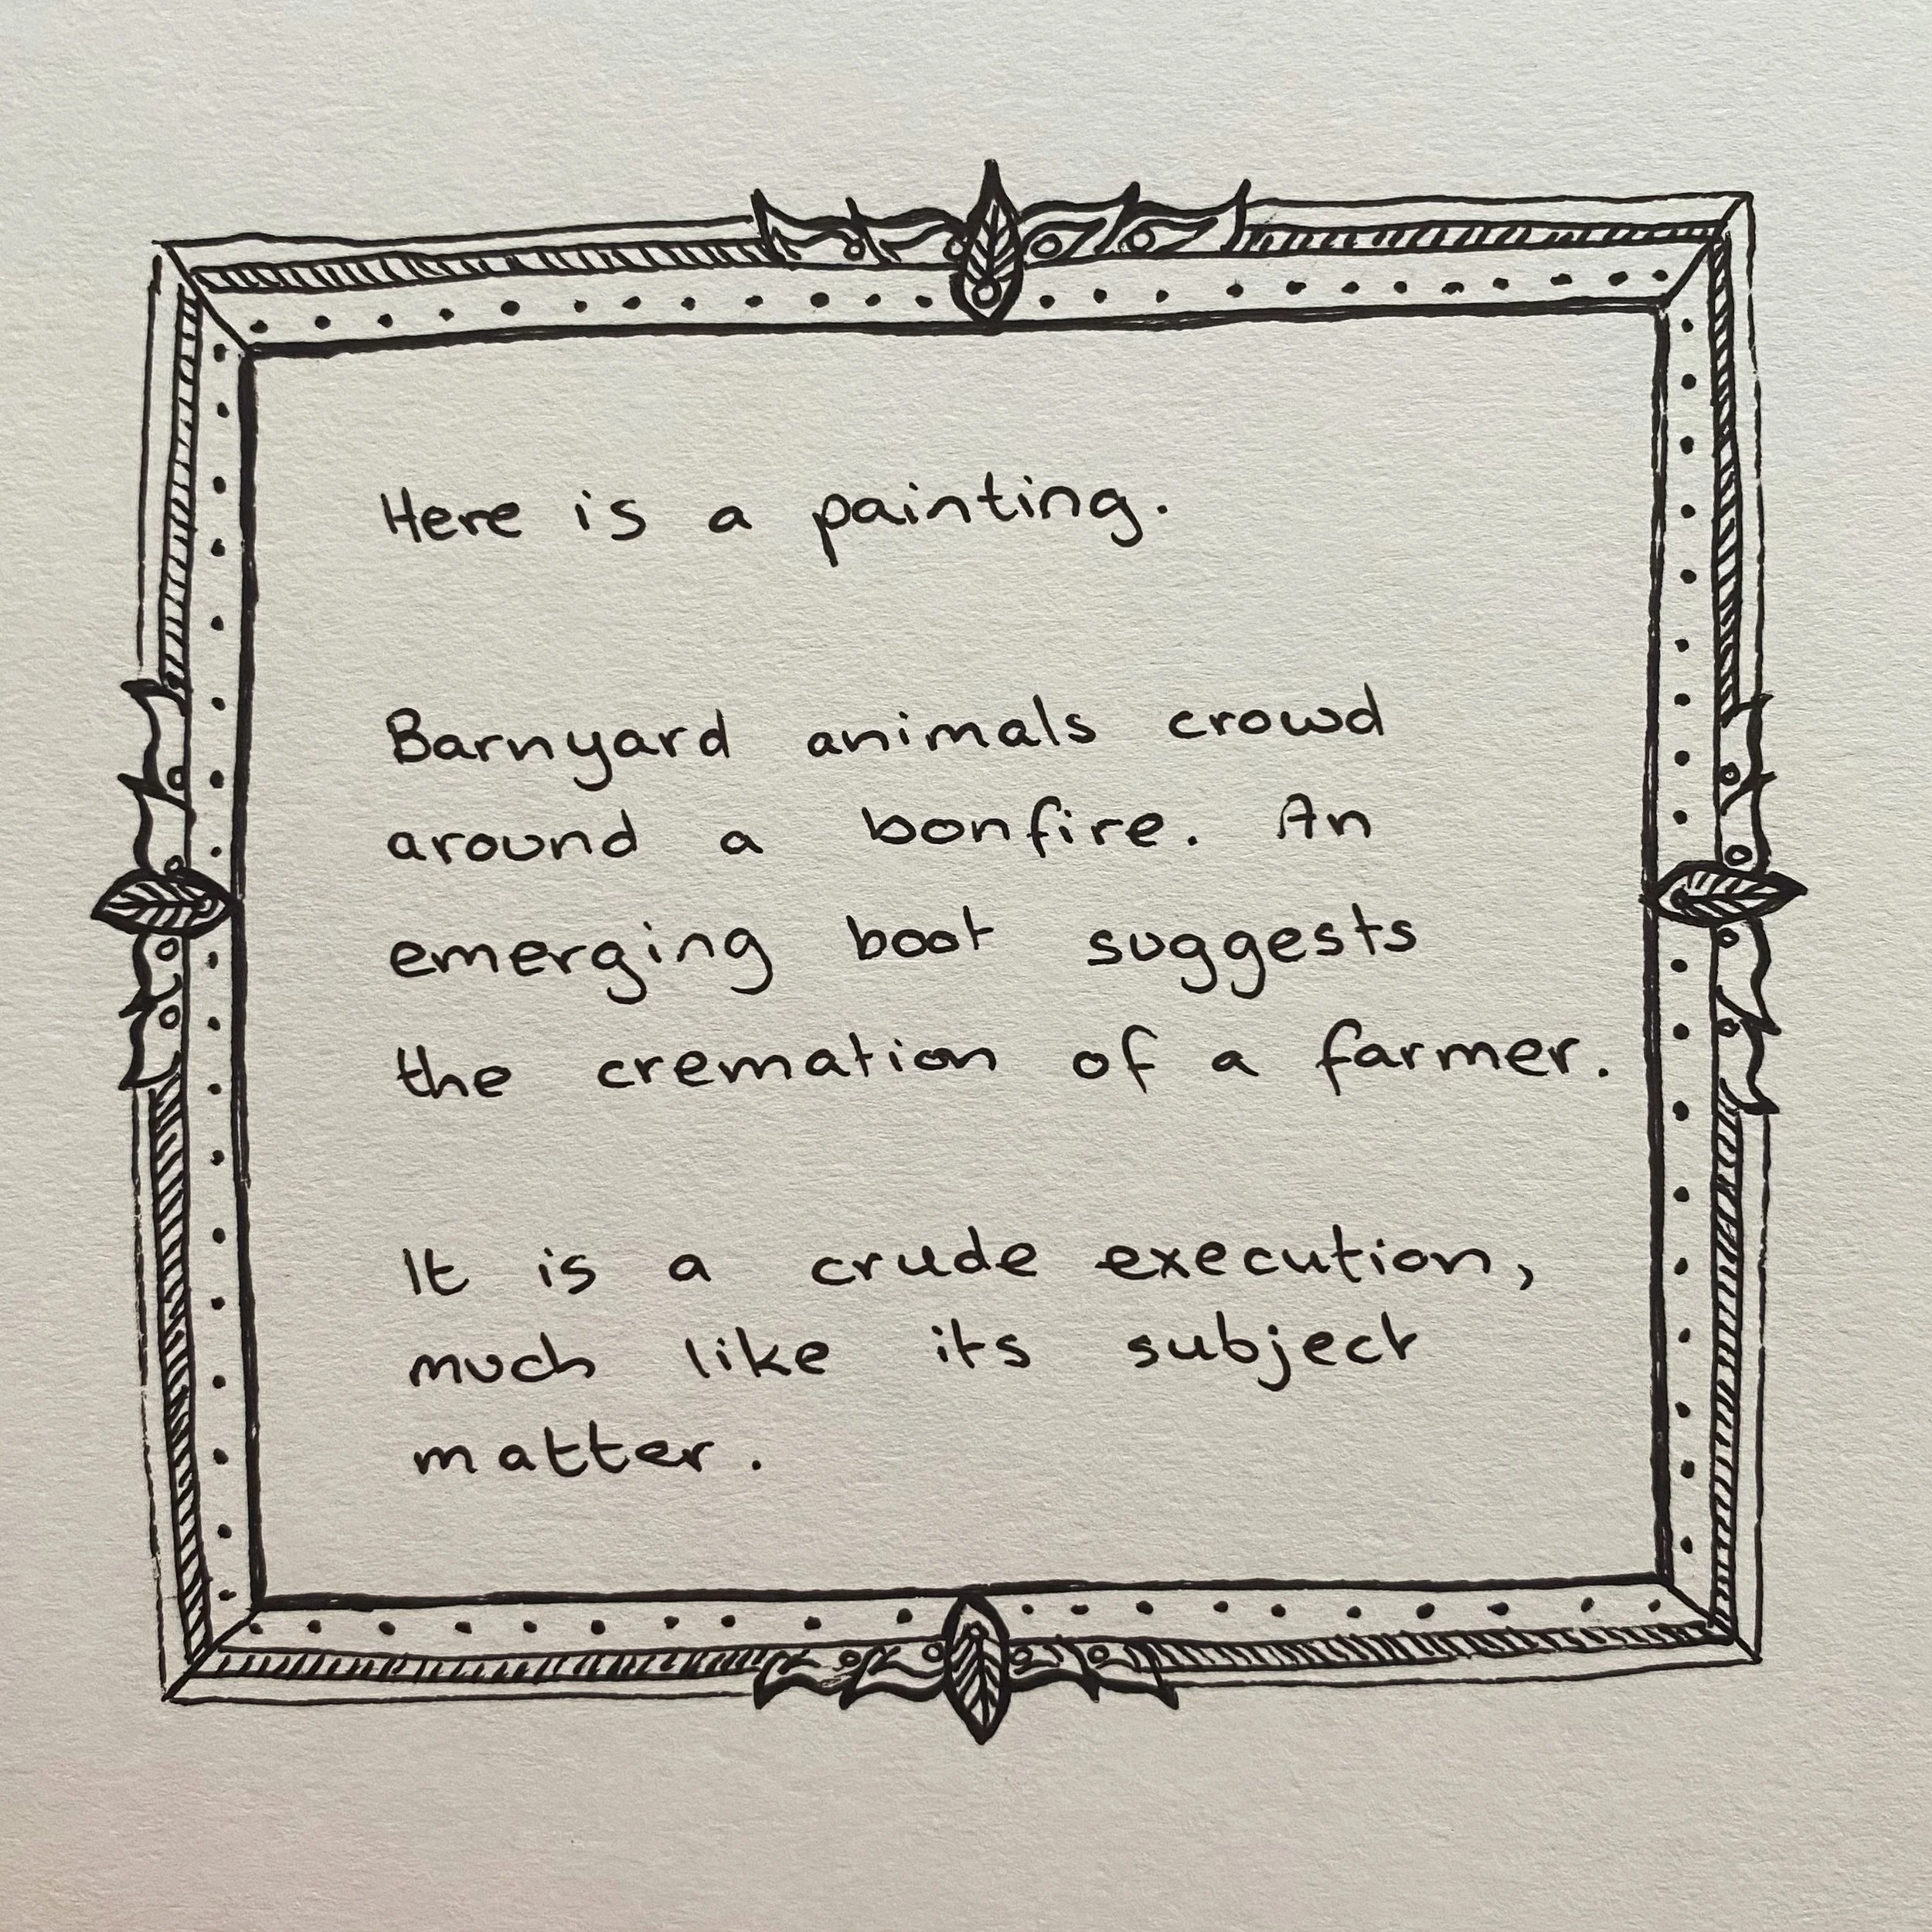 Here is a painting.
Barnyard animals crowd
around a bonfire. An
emerging boot suggests
the cremation of a farmer.
It is a crude execution,
much like its subject
matter.